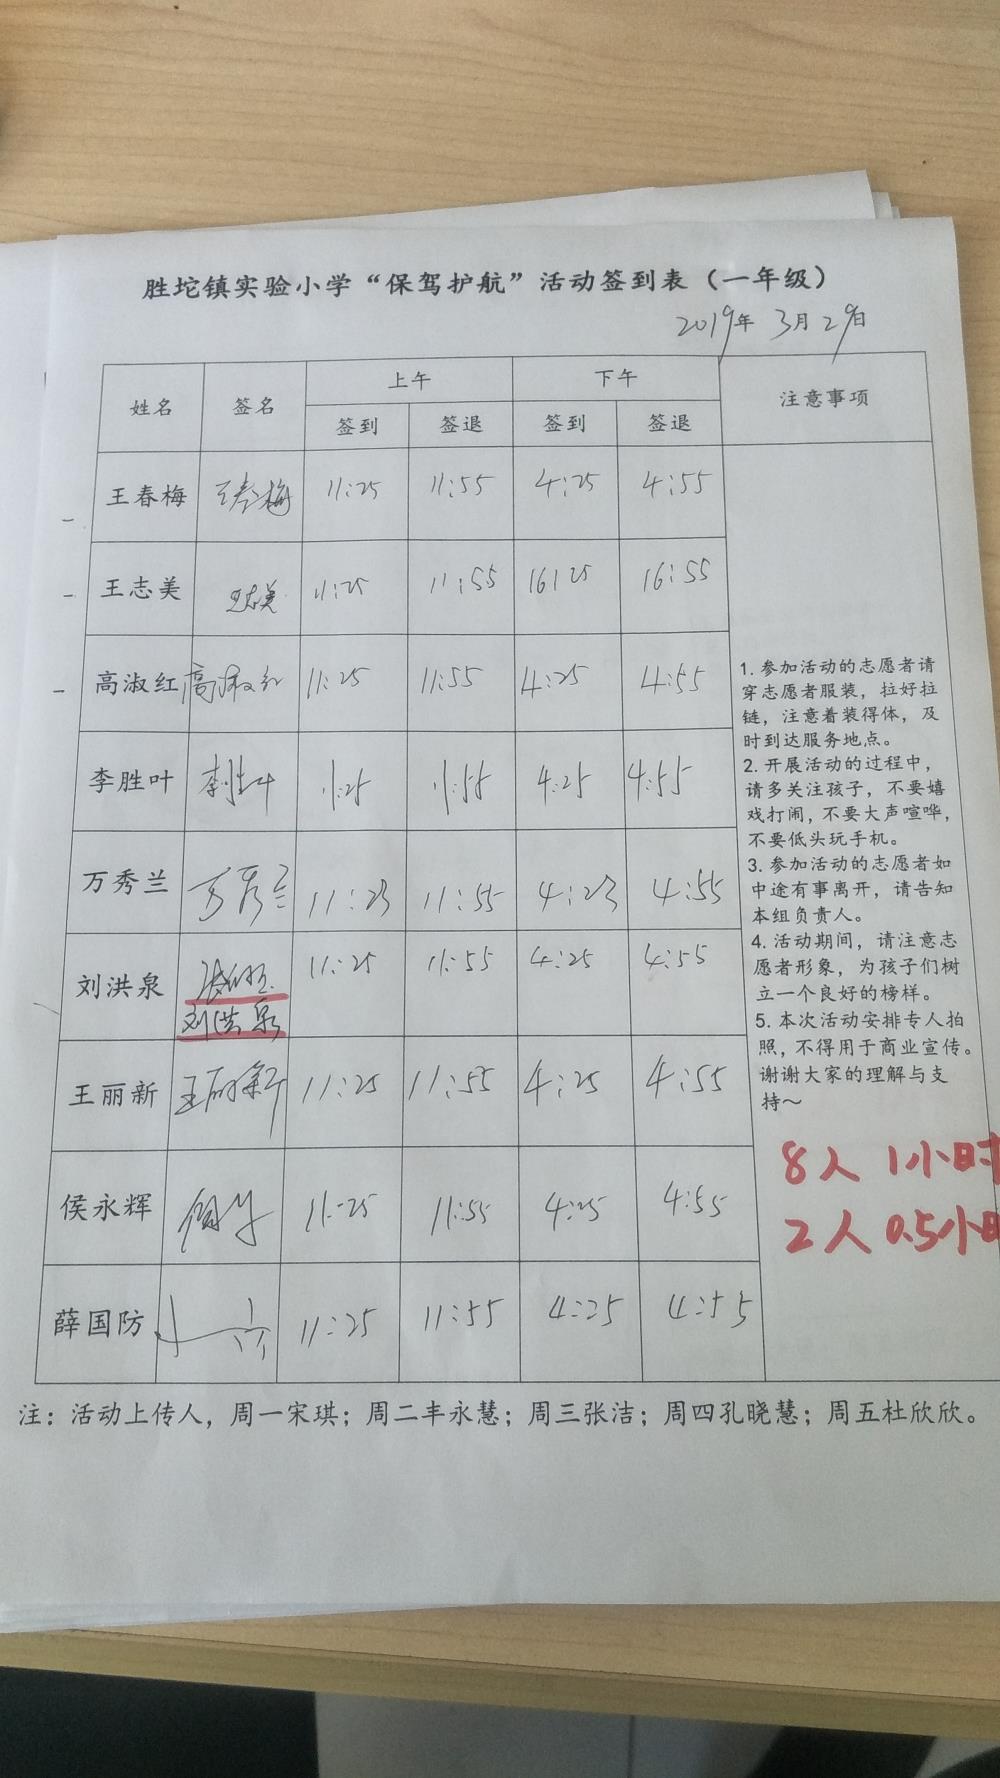 胜坨镇实验小学“保驾护航”活动签到表（一年级）
2019年 3月29日
姓名 签名 上午 下午 注意事项
签到 签退 签到 签退
王春梅 王春梅 11:25 11:55 4:25 4:55
王志美 王志美 11:25 11:55 16:25 16:55
高淑红 高淑红 11:25 11:55 4:25 4:55
李胜叶 李胜叶 11:25 11:55 4:25 4:55
万秀兰 万秀兰 11:23 11:55 4:23 4:55
刘洪泉 11:25 11:55 4:25 4:55
刘洪泉
王丽新 王丽新 11:25 11:55 4:25 4:55
侯永辉 11:25 11:55 4:25 4:55
薛国防 11:25 11:55 4:25 4:55
1. 参加活动的志愿者请
穿志愿者服装，拉好拉
链，注意着装得体，及
时到达服务地点。
2. 开展活动的过程中，
请多关注孩子，不要嬉
戏打闹，不要大声喧哗，
不要低头玩手机。
3. 参加活动的志愿者如
中途有事离开，请告知
本组负责人。
4. 活动期间，请注意志
愿者形象，为孩子们树
立一个良好的榜样。
5. 本次活动安排专人拍
照，不得用于商业宣传。
谢谢大家的理解与支
持～
8人 1小时
2人 0.5小时
注：活动上传人，周一宋琪；周二丰永慧；周三张洁；周四孔晓慧；周五杜欣欣。